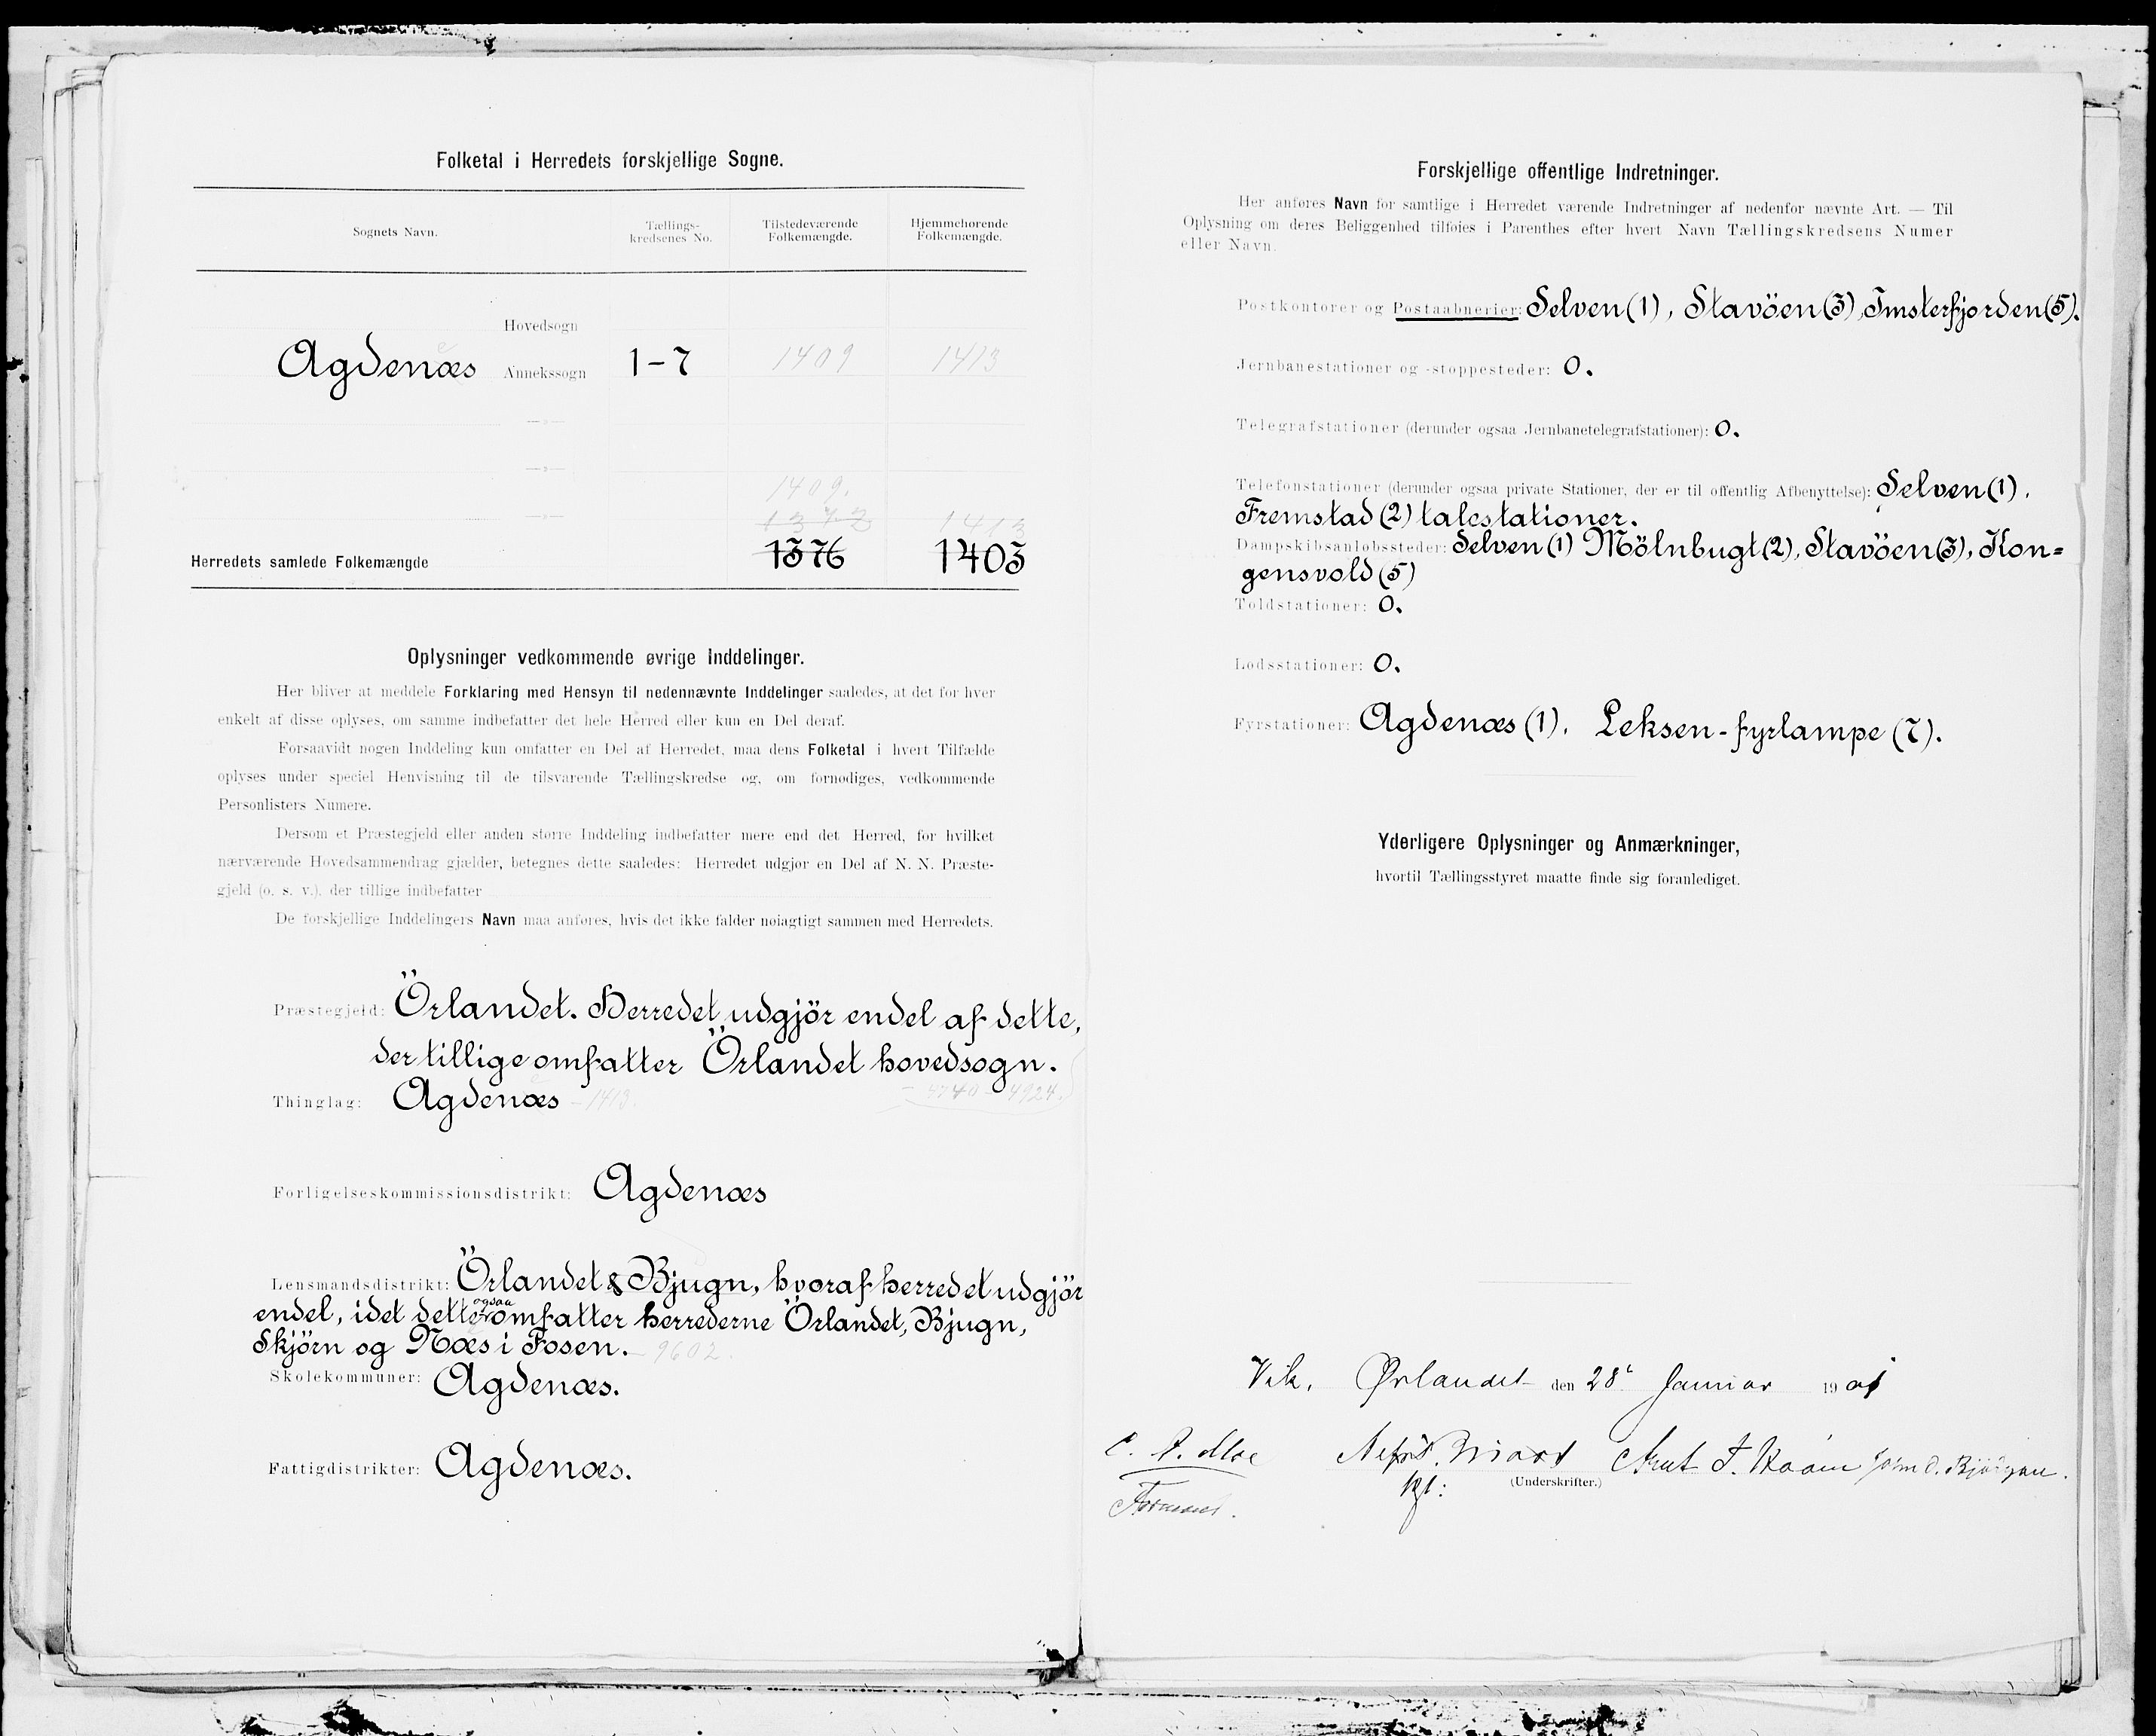 Folketal i Herredets forskjellige Sogne.
Sognets Navn.
Tællings-
kredsenes No.
Tilstedeværende
Folkemængde.
Hjemmehørende
Folkemængde.
Hovedsogn
Agdenæs Annekssogn 1-7 1409 1413
—»—
—»—
1409.
—»— 1372 1413
Herredets samlede Folkemængde 1376 1403
Oplysninger vedkommende øvrige Inddelinger.
Her bliver at meddele Forklaring med Hensyn til nedennævnte Inddelinger saaledes, at det for hver
enkelt af disse oplyses, om samme indbefatter det hele Herred eller kun en Del deraf.
Forsaavidt nogen Inddeling kun omfatter en Del af Herredet, maa dens Folketal i hvert Tilfælde
oplyses under speciel Henvisning til de tilsvarende Tællingskredse og, om fornødiges, vedkommende
Personlisters Numere.
Dersom et Præstegjeld eller anden større Inddeling indbefatter mere end det Herred, for hvilket
nærværende Hovedsammendrag gjælder, betegnes dette saaledes: Herredet udgjør en Del af N. N. Præste-
gjeld (o. s. v.), der tillige indbefatter
De forskjellige Inddelingers Navn maa anføres, hvis det ikke falder nøiagtigt sammen med Herredets.
Præstegjeld: Örlandet. Herredet udgjör endel af dette,
der tillige omfatter Örlandet hovedsogn.
Thinglag: Agdenæs - 1413. - 4740 - 4924.
Forligelseskommissionsdistrikt: Agdenæs
Lensmandsdistrikt: Örlandet & Bjugn, hvoraf herredet udgjör
endel, idet dette ogsaa omfatter herrederne Örlandet, Bjugn,
Skjörn og Næs i Fosen. - 9602.
Skolekommuner: Agdenæs.
Fattigdistrikter: Agdenæs.
Forskjellige offentlige Indretninger.
Her anføres Navn for samtlige i Herredet værende Indretninger af nedenfor nævnte Art. — Til
Oplysning om deres Beliggenhed tilføies i Parenthes efter hvert Navn Tællingskredsens Numer
eller Navn.
Postkontorer og Postaabnerier: Selven (1), Stavöen (3), Imsterfjorden (5).
Jernbanestationer og -stoppesteder: 0.
Telegrafstationer (derunder ogsaa Jernbanetelegrafstationer): 0.
Telefonstationer (derunder ogsaa private Stationer, der er til offentlig Afbenyttelse): Selven (1),
Fremstad (2) talestationer.
Dampskibsanløbssteder: Selven (1) Mölnbugt (2), Stavöen (3), Kon=
gensvold (5)
Toldstationer: 0.
Lodsstationer: 0.
Fyrstationer: Agdenæs (1). Leksen-fyrlampe (7).
Yderligere Oplysninger og Anmærkninger,
hvortil Tællingsstyret maatte finde sig foranlediget.
Vik, Ørlandet den 28 Januar 1901
C. A. Moe
(Underskrifter.)